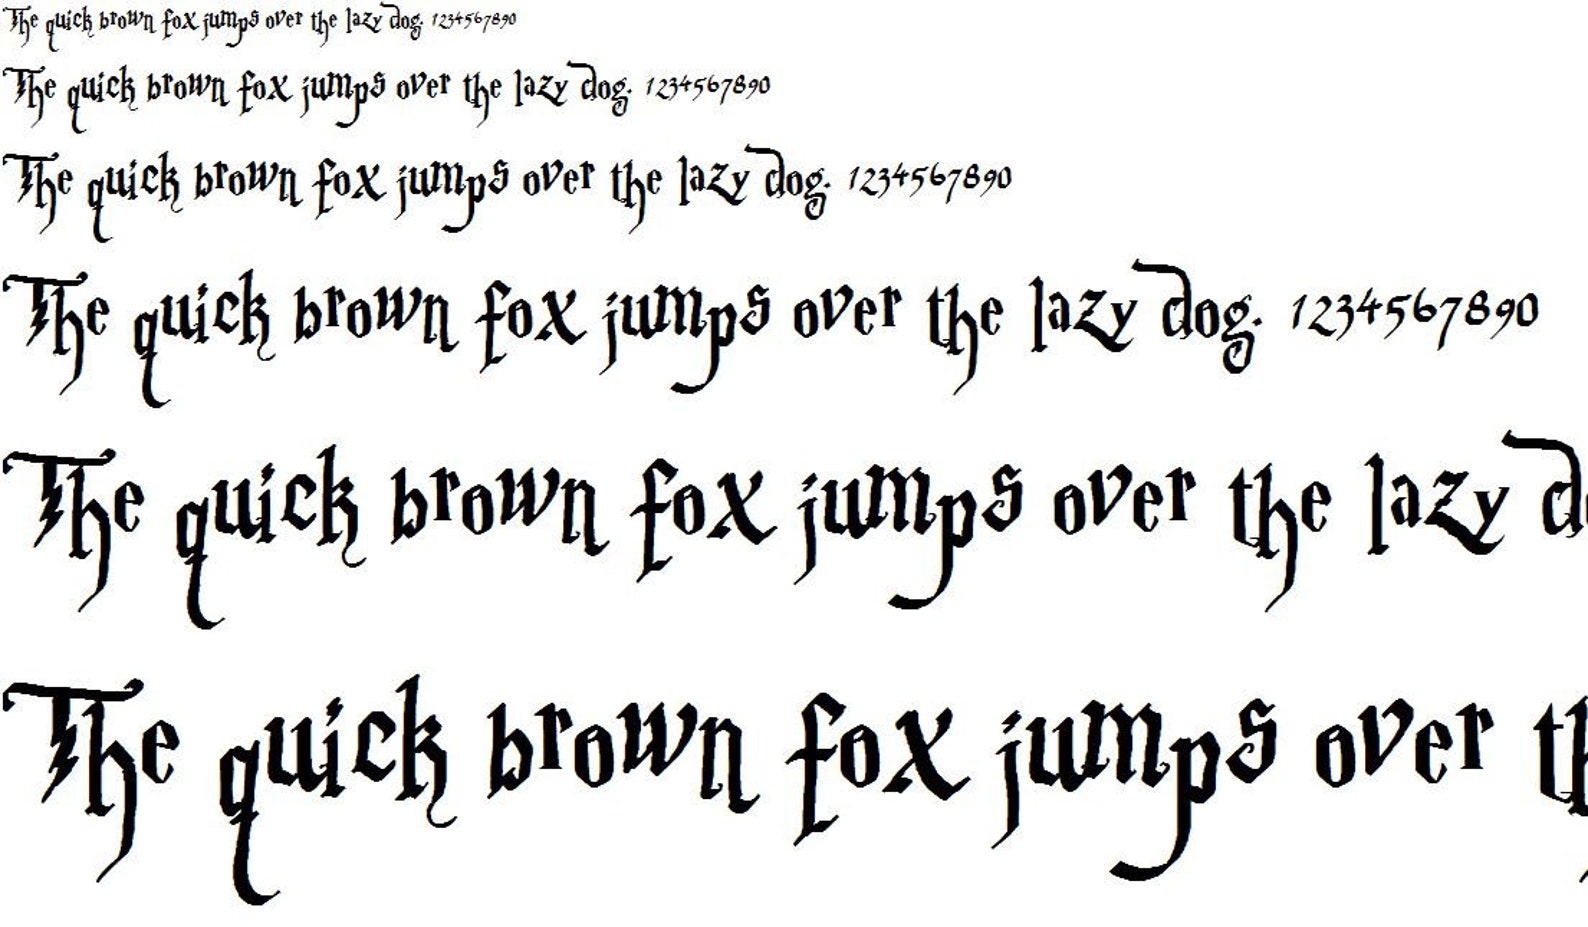 The quick brown fox jumps over the lazy dog. 1234567890
The quick brown fox jumps over the lazy dog. 1234567890
The quick brown fox jumps over the lazy dog. 1234567890
The quick brown fox jumps over the lazy dog. 1234567890
The quick brown fox jumps over the lazy
The quick brown fox jumps over